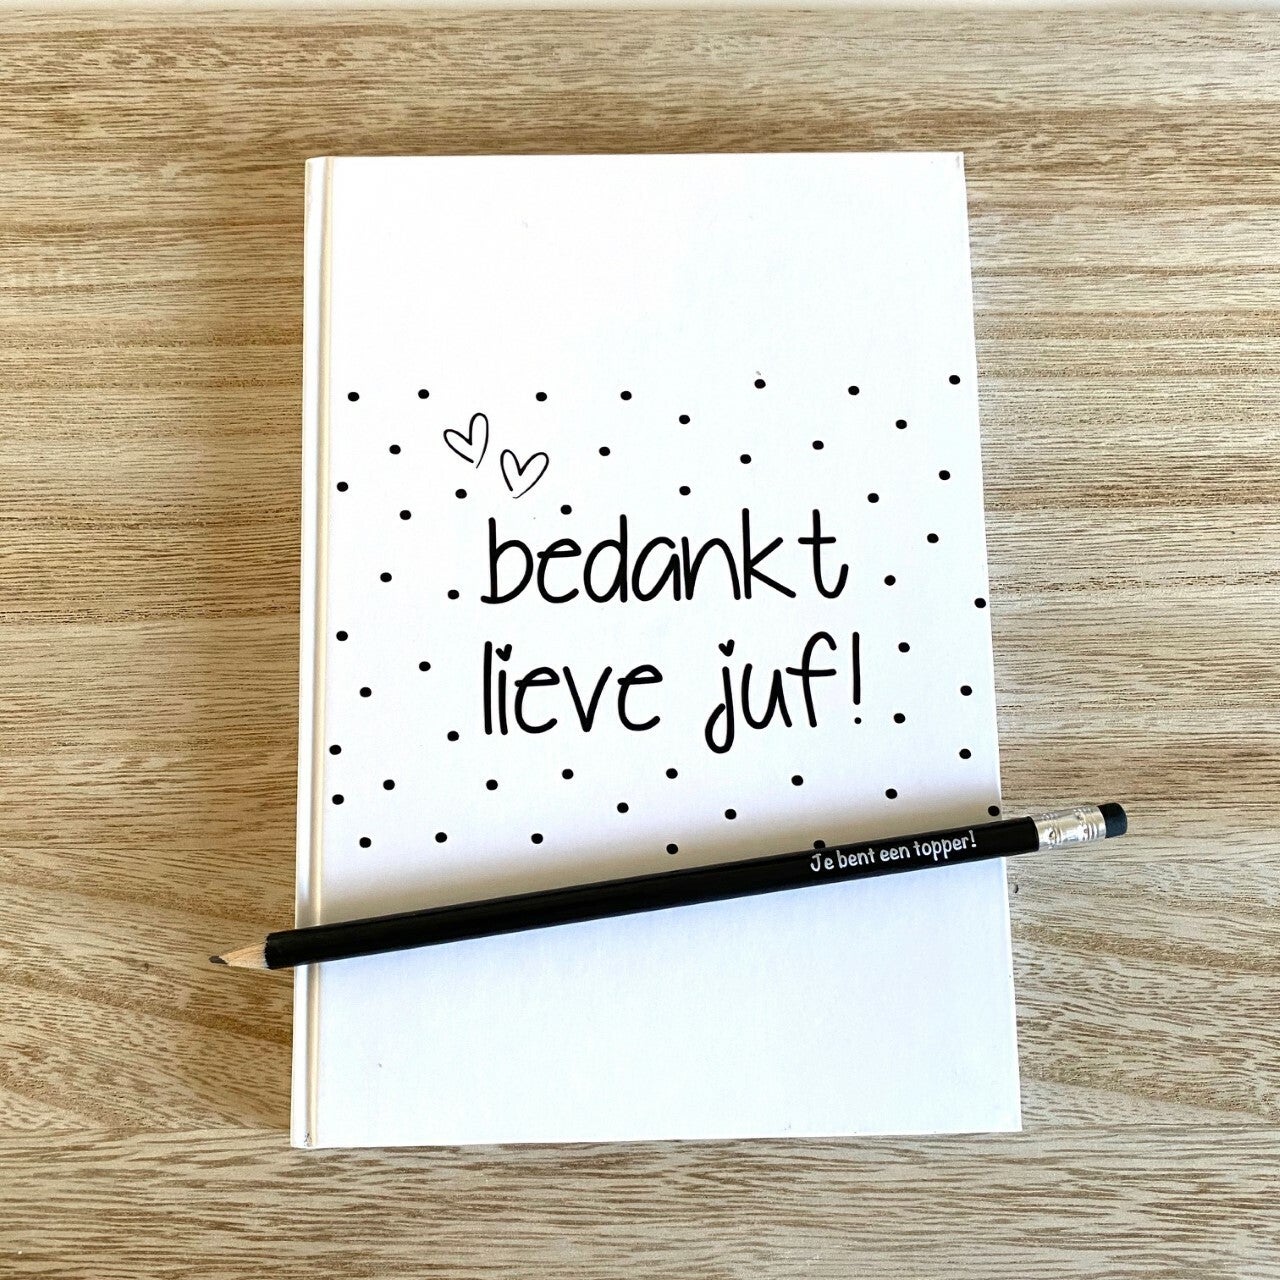 bedankt
lieve juf!
Je bent een topper!